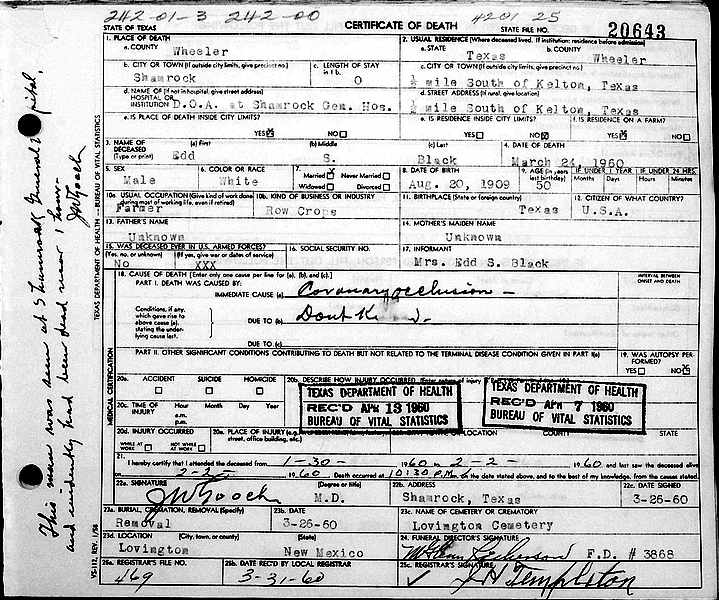 242-01-3 242-00
4201 25
STATE OF TEXAS
CERTIFICATE OF DEATH
STATE FILE NO. 20643
1. PLACE OF DEATH
a. COUNTY
Wheeler
2. USUAL RESIDENCE (Where deceased lived. If institution: residence before admission)
a. STATE
Texas
b. COUNTY
Wheeler
b. CITY OR TOWN (If outside city limits, give precinct no.)
Shamrock
c. LENGTH OF STAY in 1 b.
0
c. CITY OR TOWN (If outside city limits, give precinct no.)
½ mile South of Kelton, Texas
d. NAME OF (If not in hospital, give street address)
HOSPITAL OR
INSTITUTION D.O.A. at Shamrock Gen. Hos.
d. STREET ADDRESS (If rural, give location)
½ mile South of Kelton, Texas
e. IS PLACE OF DEATH INSIDE CITY LIMITS?
YES X NO
e. IS RESIDENCE INSIDE CITY LIMITS?
YES NO X
f. IS RESIDENCE ON A FARM?
YES X NO
3. NAME OF DECEASED
(Type or print)
(a) First
Edd
(b) Middle
S.
(c) Last
Black
4. DATE OF DEATH
March 24, 1960
5. SEX
Male
6. COLOR OR RACE
White
7. Married X Never Married
Widowed Divorced
8. DATE OF BIRTH
Aug. 20, 1909
9. AGE (In years last birthday)
50
IF UNDER 1 YEAR
Months Days
IF UNDER 24 HRS.
Hours Min.
10a. USUAL OCCUPATION (Give kind of work done during most of working life, even if retired)
Farmer
10b. KIND OF BUSINESS OR INDUSTRY
Row Crops
11. BIRTHPLACE (State or foreign country)
Texas
12. CITIZEN OF WHAT COUNTRY?
U.S.A.
13. FATHER'S NAME
Unknown
14. MOTHER'S MAIDEN NAME
Unknown
15. WAS DECEASED EVER IN U.S. ARMED FORCES?
(Yes, no, or unknown) (If yes, give war or dates of service)
No XXX
16. SOCIAL SECURITY NO.
17. INFORMANT
Mrs. Edd S. Black
18. CAUSE OF DEATH [Enter only one cause per line for (a), (b), and (c).]
INTERVAL BETWEEN ONSET AND DEATH
PART I. DEATH WAS CAUSED BY:
IMMEDIATE CAUSE (a) Coronary occlusion -
Conditions, if any, which gave rise to above cause (a), stating the underlying cause last.
DUE TO (b) Dont
DUE TO (c)
PART II. OTHER SIGNIFICANT CONDITIONS CONTRIBUTING TO DEATH BUT NOT RELATED TO THE TERMINAL DISEASE CONDITION GIVEN IN PART I(a)
19. WAS AUTOPSY PERFORMED?
YES NO X
20a. ACCIDENT SUICIDE HOMICIDE
20b. DESCRIBE HOW INJURY OCCURRED
TEXAS DEPARTMENT OF HEALTH
REC'D APR 13 1960
BUREAU OF VITAL STATISTICS
TEXAS DEPARTMENT OF HEALTH
REC'D APR 7 1960
BUREAU OF VITAL STATISTICS
20c. TIME OF INJURY
Hour Month Day Year
a.m.
p.m.
20d. INJURY OCCURRED
WHILE AT WORK NOT WHILE AT WORK
20e. PLACE OF INJURY
street, office building, etc.)
OR LOCATION
COUNTY
STATE
21. I hereby certify that I attended the deceased from 1-30- 1960 2-2- 1960 and last saw the deceased alive
on 2-2- 1960 Death occurred at 10:30 P.M. on the date stated above, and to the best of my knowledge, from the causes stated.
22a. SIGNATURE
J W Gooch
(Degree or title)
M.D.
22b. ADDRESS
Shamrock, Texas
22c. DATE SIGNED
3-26-60
23a. BURIAL, CREMATION, REMOVAL (Specify)
Removal
23b. DATE
3-26-60
23c. NAME OF CEMETERY OR CREMATORY
Lovington Cemetery
23d. LOCATION (City, town, or county)
Lovington
(State)
New Mexico
24. FUNERAL DIRECTOR'S SIGNATURE
F.D. # 3868
25a. REGISTRAR'S FILE NO.
469
25b. DATE REC'D BY LOCAL REGISTRAR
3-31-60
25c. REGISTRAR'S SIGNATURE
J H Templeton
This man was seen at Shamrock General Hospital,
and evidently had been dead near 1 hour
JW Gooch
TEXAS DEPARTMENT OF HEALTH — BUREAU OF VITAL STATISTICS
MEDICAL CERTIFICATION
VS-112, REV. 1/58